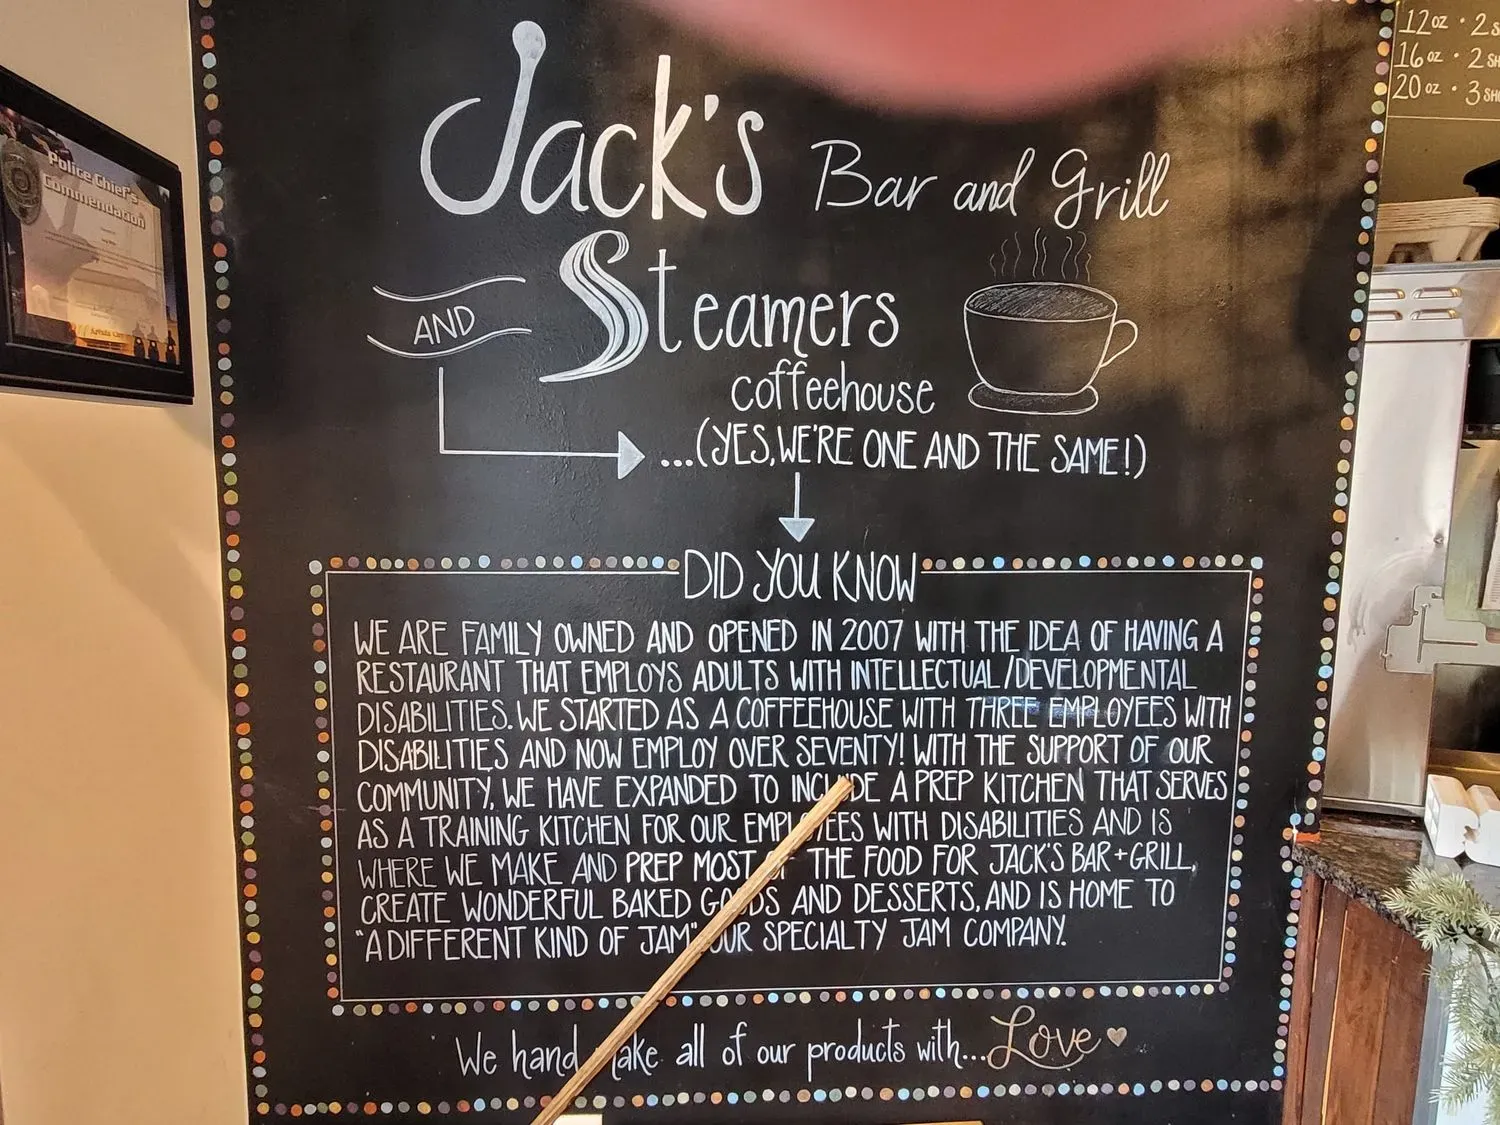 Jack's Bar and Grill
AND Steamers
coffeehouse
...(YES, WE'RE ONE AND THE SAME!)
DID YOU KNOW
WE ARE FAMILY OWNED AND OPENED IN 2007 WITH THE IDEA OF HAVING A
RESTAURANT THAT EMPLOYS ADULTS WITH INTELLECTUAL/DEVELOPMENTAL
DISABILITIES. WE STARTED AS A COFFEEHOUSE WITH THREE EMPLOYEES WITH
DISABILITIES AND NOW EMPLOY OVER SEVENTY! WITH THE SUPPORT OF OUR
COMMUNITY, WE HAVE EXPANDED TO INCLUDE A PREP KITCHEN THAT SERVES
AS A TRAINING KITCHEN FOR OUR EMPLOYEES WITH DISABILITIES AND IS
WHERE WE MAKE AND PREP MOST OF THE FOOD FOR JACK'S BAR+GRILL,
CREATE WONDERFUL BAKED GOODS AND DESSERTS, AND IS HOME TO
"A DIFFERENT KIND OF JAM" OUR SPECIALTY JAM COMPANY.
We hand make all of our products with... Love
Police Chief's
Commendation
12 oz • 2
16 oz • 2
20 oz • 3